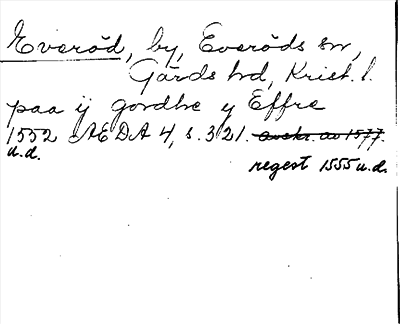 Everöd, by, Everöds sn,
Gärds hd, Krist. l.
paa ij gordhe y Effre
1552 AEDA 4, s. 321. avskr. av 1577.
u.d.
regest 1555 u.d.